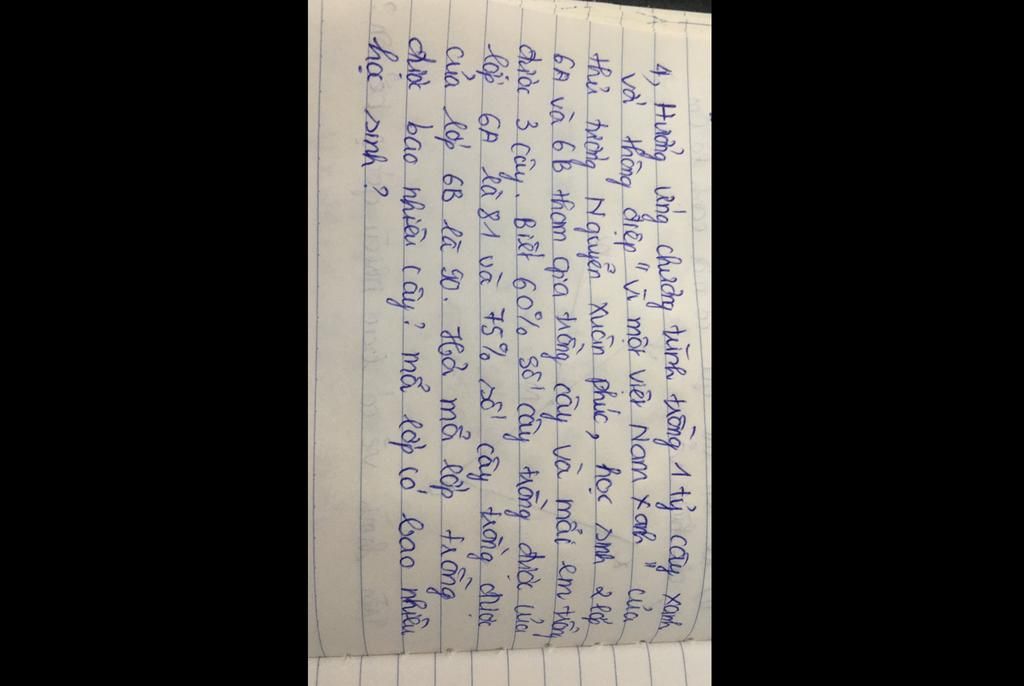 4, Hưởng ứng chương trình trồng 1 tỷ cây xanh
với thông điệp "Vì một việt Nam xanh" của
thủ tướng Nguyễn xuân phúc, học sinh 2 lớp
6A và 6B tham gia trồng cây và mỗi em trồng
được 3 cây. Biết 60% số cây trồng được của
lớp 6A là 81 và 75% số cây trồng được
của lớp 6B là 90. Hỏi mỗi lớp trồng
được bao nhiêu cây? mỗi lớp có bao nhiêu
học sinh?